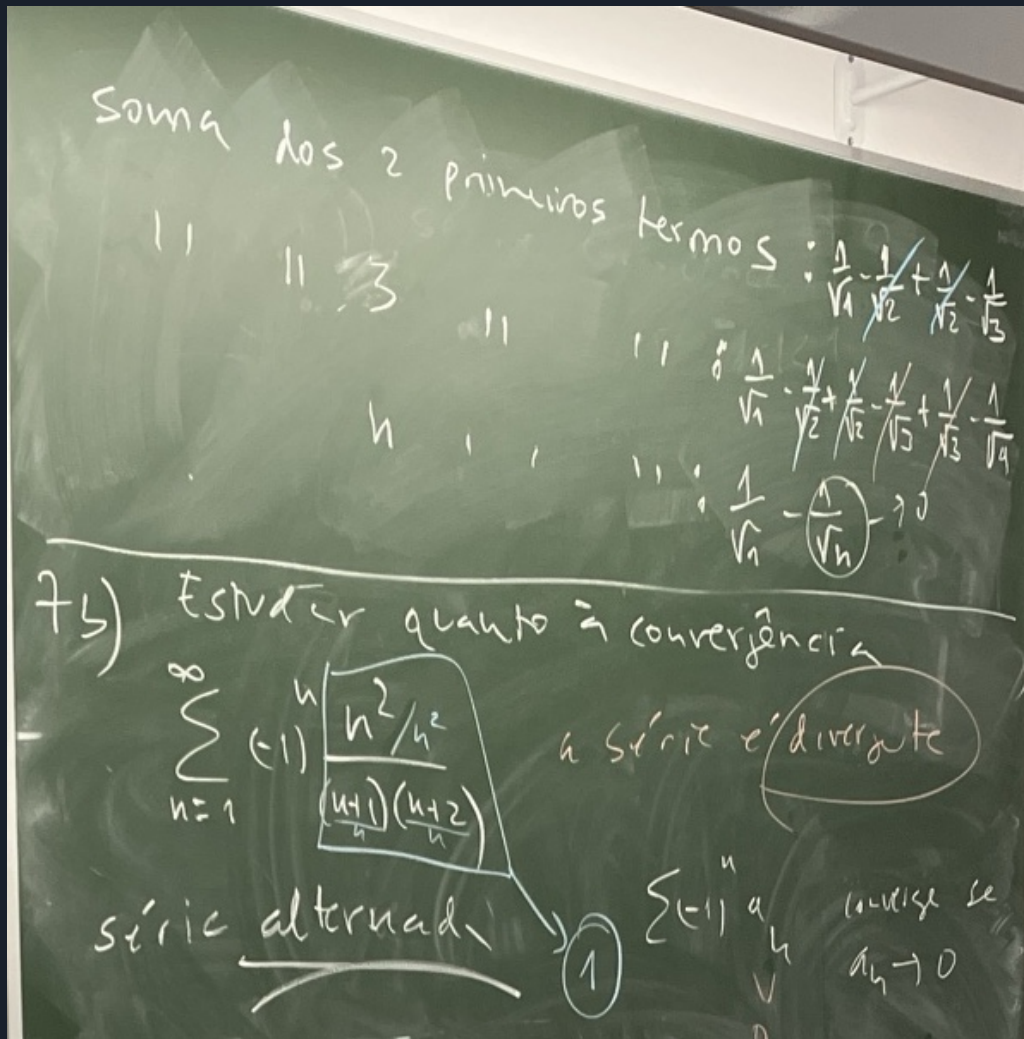 Soma dos 2 primeiros termos : 1/√1 - 1/√2 + 1/√2 - 1/√3
" " 3 " " : 1/√1 - 1/√2 + 1/√2 - 1/√3 + 1/√3 - 1/√4
n , , " : 1/√1 - 1/√n → 0
7b) Estudar quanto à convergência
∞ Σ n=1 (-1)^n n²/n² / ((n+1)/n)((n+2)/n)
a série é divergente
série alternada
1
Σ(-1)^n a_n converge se
a_n → 0